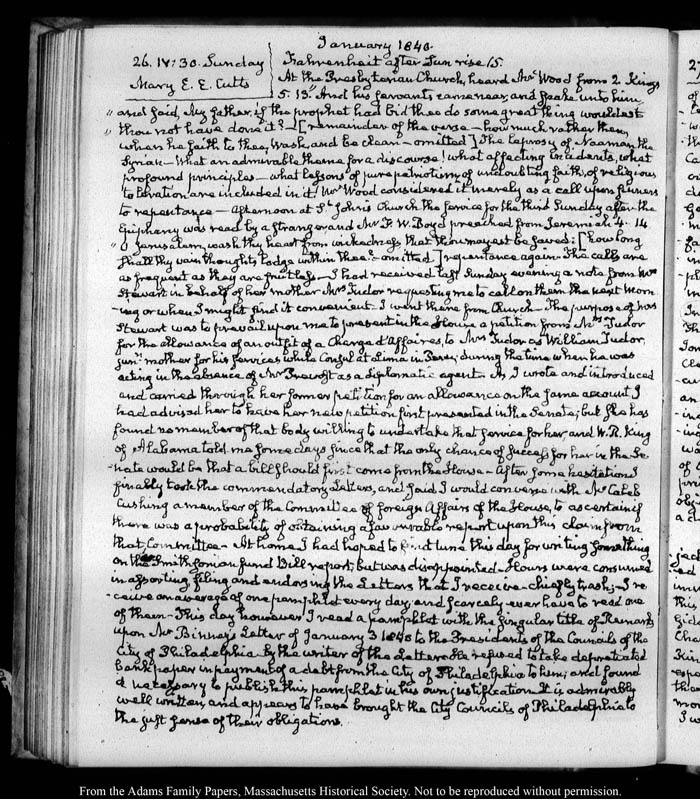 January 1840.
26. IV:30. Sunday
Fahrenheit after Sun rise 15.
Mary E. E. Cutts
At the Presbyterian Church, heard Mr Wood from 2. Kings
5. 13. And his servants came near, and spake unto him
" and said, My father, if the prophet had bid thee do some great thing wouldest
" thou not have done it? — [remainder of the verse — how much rather then,
when he saith to thee, Wash, and be clean — omitted] The leprosy of Naaman the
Syrian — What an admirable theme for a discourse! what affecting incidents, what
profound principles — what lessons of pure patriotism, of undoubting faith, of religious
toleration are included in it. Mr Wood considered it merely as a call upon sinners
to repentance — Afternoon at St. John's Church the service for the third Sunday after the
Epiphany was read by a stranger and Mr F. W. Boyd preached from Jeremiah 4. 14
" O Jerusalem, wash thy heart from wickedness, that thou mayest be saved: [how long
shall thy vain thoughts lodge within thee? — omitted] repentance again. The calls are
as frequent as they are fruitless — I had received last Sunday evening a note from Mrs
Stewart in behalf of her mother Mrs Tudor requesting me to call on them the next morn
-ing or when I might find it convenient — I went there from Church — The purpose of Mrs
Stewart was to prevail upon me to present in the House a petition from Mrs Tudor
for the allowance of an outfit of a Chargé d'Affaires, to Mrs Tudor as William Tudor
junr's mother for his services while Consul at Lima in Peru, during the time when he was
acting in the absence of Mr Prevost as a diplomatic agent. As I wrote and introduced
and carried through her former petition for an allowance on the same account, I
had advised her to have her new petition first presented in the Senate; but she has
found no member of that body willing to undertake that service for her, and W. R. King
of Alabama told me some days since that the only chance of success for her in the Se-
nate would be that a bill should first come from the House — After some hesitation I
finally took the commendatory Letters, and said I would converse with Mr Caleb
Cushing a member of the Committee of foreign Affairs of the House, to ascertain if
there was a probability of obtaining a favourable report upon this claim from
that Committee — At home I had hoped to find time this day for writing something
on the Smithsonian fund Bill report; but was disappointed — Hours were consumed
in assorting filing and endorsing the Letters that I receive — chiefly trash; — I re
-ceive an average of one pamphlet every day, and scarcely ever have to read one
of them — This day however I read a pamphlet with the singular title of Remarks
upon Mr Binney's Letter of January 3 1840 to the Presidents of the Councils of the
City of Philadelphia by the writer of the Letter — He refused to take depreciated
bank paper in payment of a debt from the City of Philadelphia to him; and found
it necessary to publish this pamphlet in his own justification. It is admirably
well written, and appears to have brought the City Councils of Philadelphia to
the just sense of their obligations.
From the Adams Family Papers, Massachusetts Historical Society. Not to be reproduced without permission.